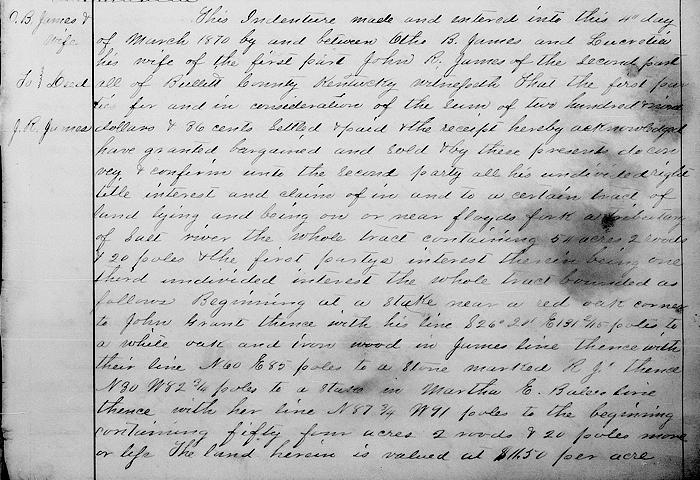 O. B. James & Wife
To } Deed
J. R. James
This Indenture made and entered into this 4th day
of March 1870 by and between Otho B. James and Lucretia
his wife of the first part John R. James of the second part
all of Bullitt County Kentucky witnesseth That the first par
ties for and in consideration of the sum of two hundred &
dollars & 36 cents settled & paid & the receipt hereby acknowledged
have granted bargained and sold & by these presents do con
vey & confirm unto the second party all his undivided right
title interest and claim of in and to a certain tract of
land lying and being on or near floyds fork a tributary
of Salt river the whole tract containing 54 acres 2 roods
& 20 poles & the first partys interest therein being one
third undivided interest the whole tract bounded as
follows Beginning at a Stake near a red oak corner
to John Grant thence with his line S26° E131 poles to
a white oak and iron wood in James line thence with
their line N60 E85 poles to a Stone marked R J thence
N30 W82 3/4 poles to a Stake in Martha E. Bales line
thence with her line N87 3/4 W91 poles to the beginning
containing fifty four acres 2 roods & 20 poles more
or less The land herein is valued at $11.50 per acre